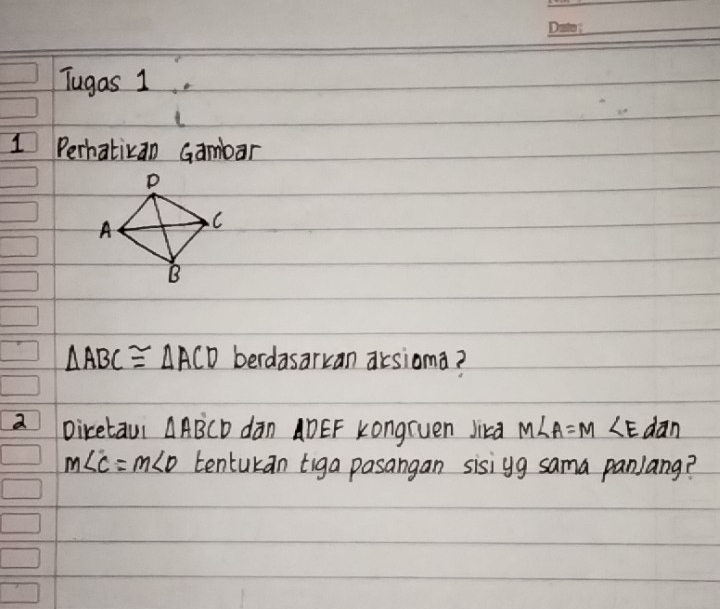 Date:
Tugas 1
1 Perhatikan Gambar
D
A
C
B
ΔABC ≅ ΔACD berdasarkan aksioma?
2 Diketaui ΔABCD dan ΔDEF kongruen Jika M∠A=M ∠E dan
m∠C = m∠D tentukan tiga pasangan sisi yg sama panjang?